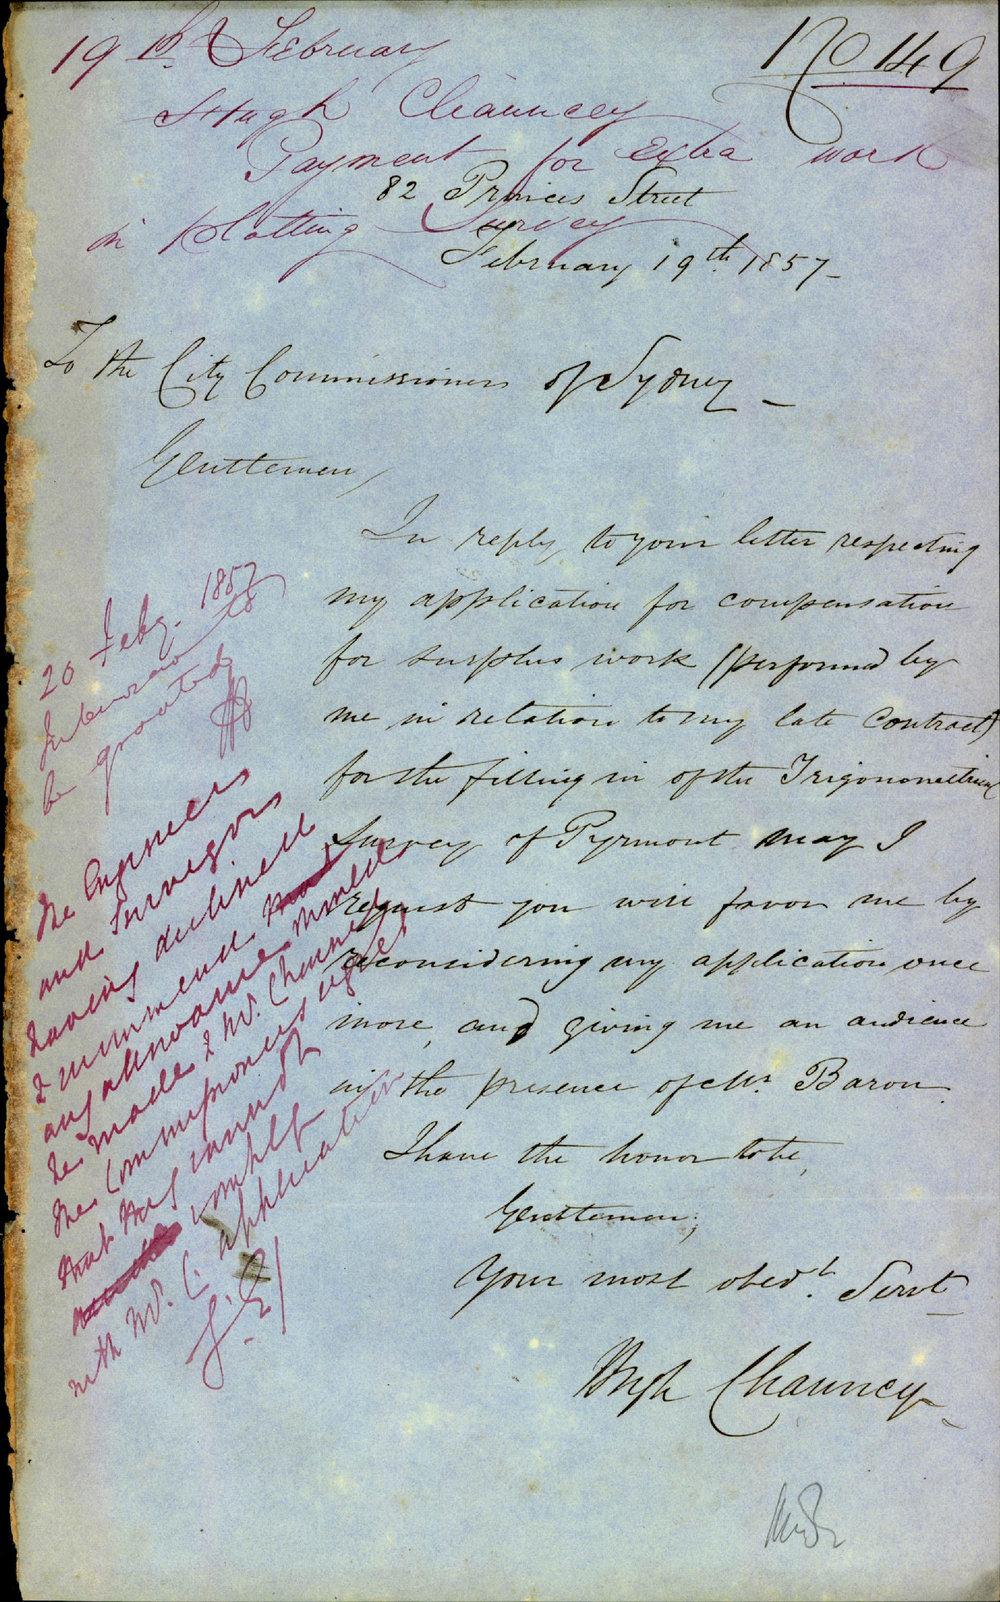 19th February
No 149
Hugh Chauncey
Payment for Extra work
in Plotting Survey
82 Princes Street
February 19th 1857-
To the City Commissioners of Sydney_
Gentlemen,
In reply, to your letter respecting
my application for compensation
for surplus work (performed by
me in relation to my late Contract)
for the filling in of the Trigonometrical
Survey of Pyrmont may I
request you will favor me by
reconsidering my application once
more, and giving me an audience
in the presence of Mr. Baron.
I have the honor to be,
Gentlemen;
Your most obedt. Servt
Hugh Chauncey
20 Feby. 1857
Interview to
be granted
The Engineers
and Surveyors
having declined
to recommend that
any allowance
be made to Mr. Chauncey
the Commissioners regret
that they cannot
comply
with Mr. C. application